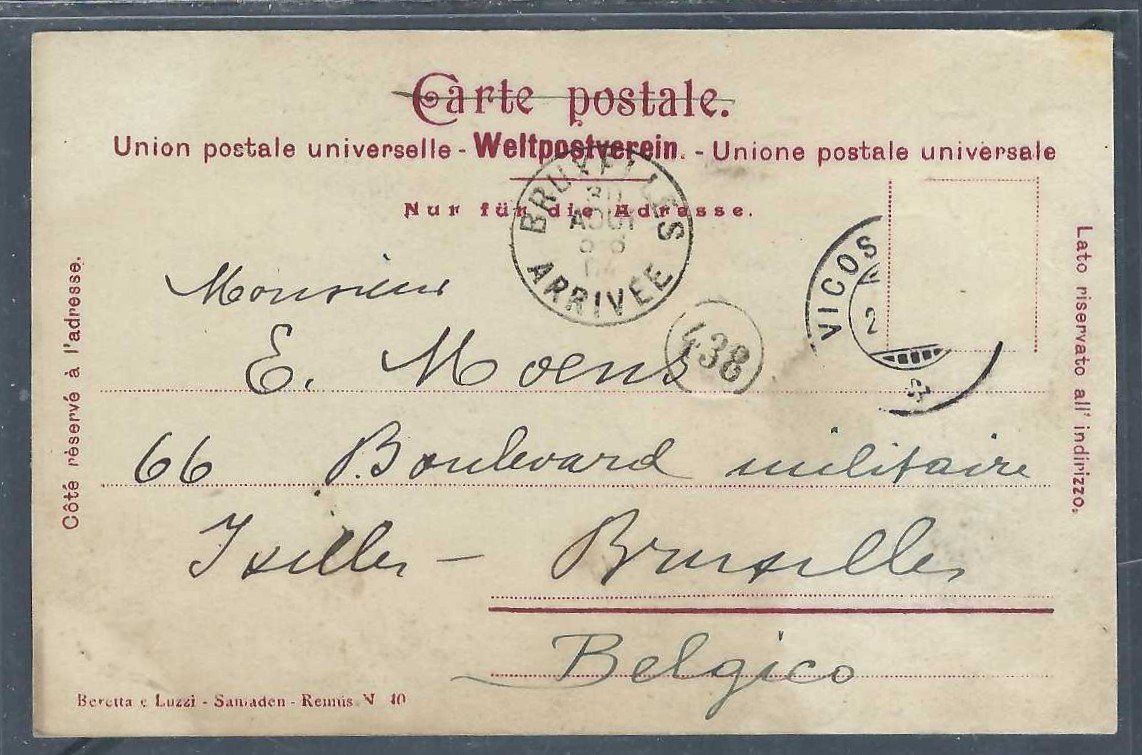 Carte postale.
Union postale universelle - Weltpostverein. - Unione postale universale
Nur für die Adresse.
BRUXELLES
30
AOUT
ARRIVÉE
438
VICOS
2
Côté rèservé à l'adresse.
Lato riservato all' indirizzo.
Monsieur
E. Moens
66 Boulevard militaire
Ixelles - Bruxelles
Belgico
Beretta e Luzzi - Samaden - Remüs N 40